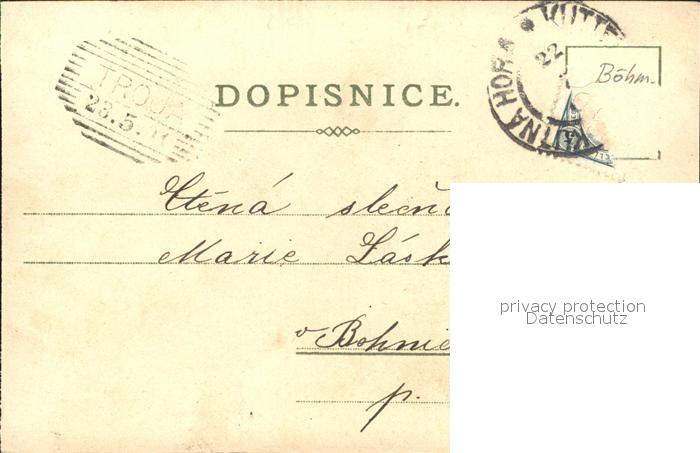 TROJA
23.5.
DOPISNICE.
KUTTE
KUTNÁ HORA
22
Böhm.
Ctěná slečn
Marie Lásk
v Bohnic
p.
privacy protection
Datenschutz